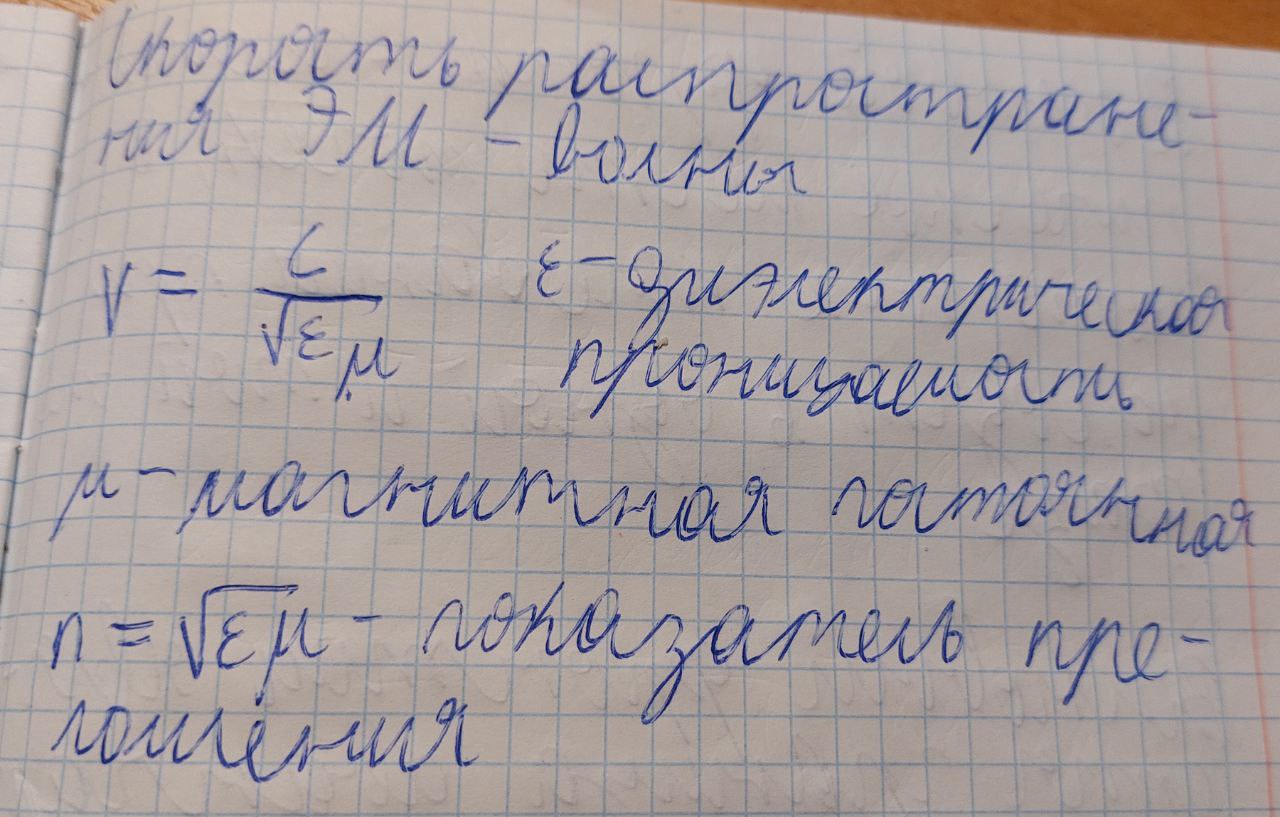 Скорость распростране-
ния ЭМ - волны
v = c / √εμ ε - диэлектрическая
проницаемость
μ - магнитная постоянная
n = √εμ - показатель пре-
ломления